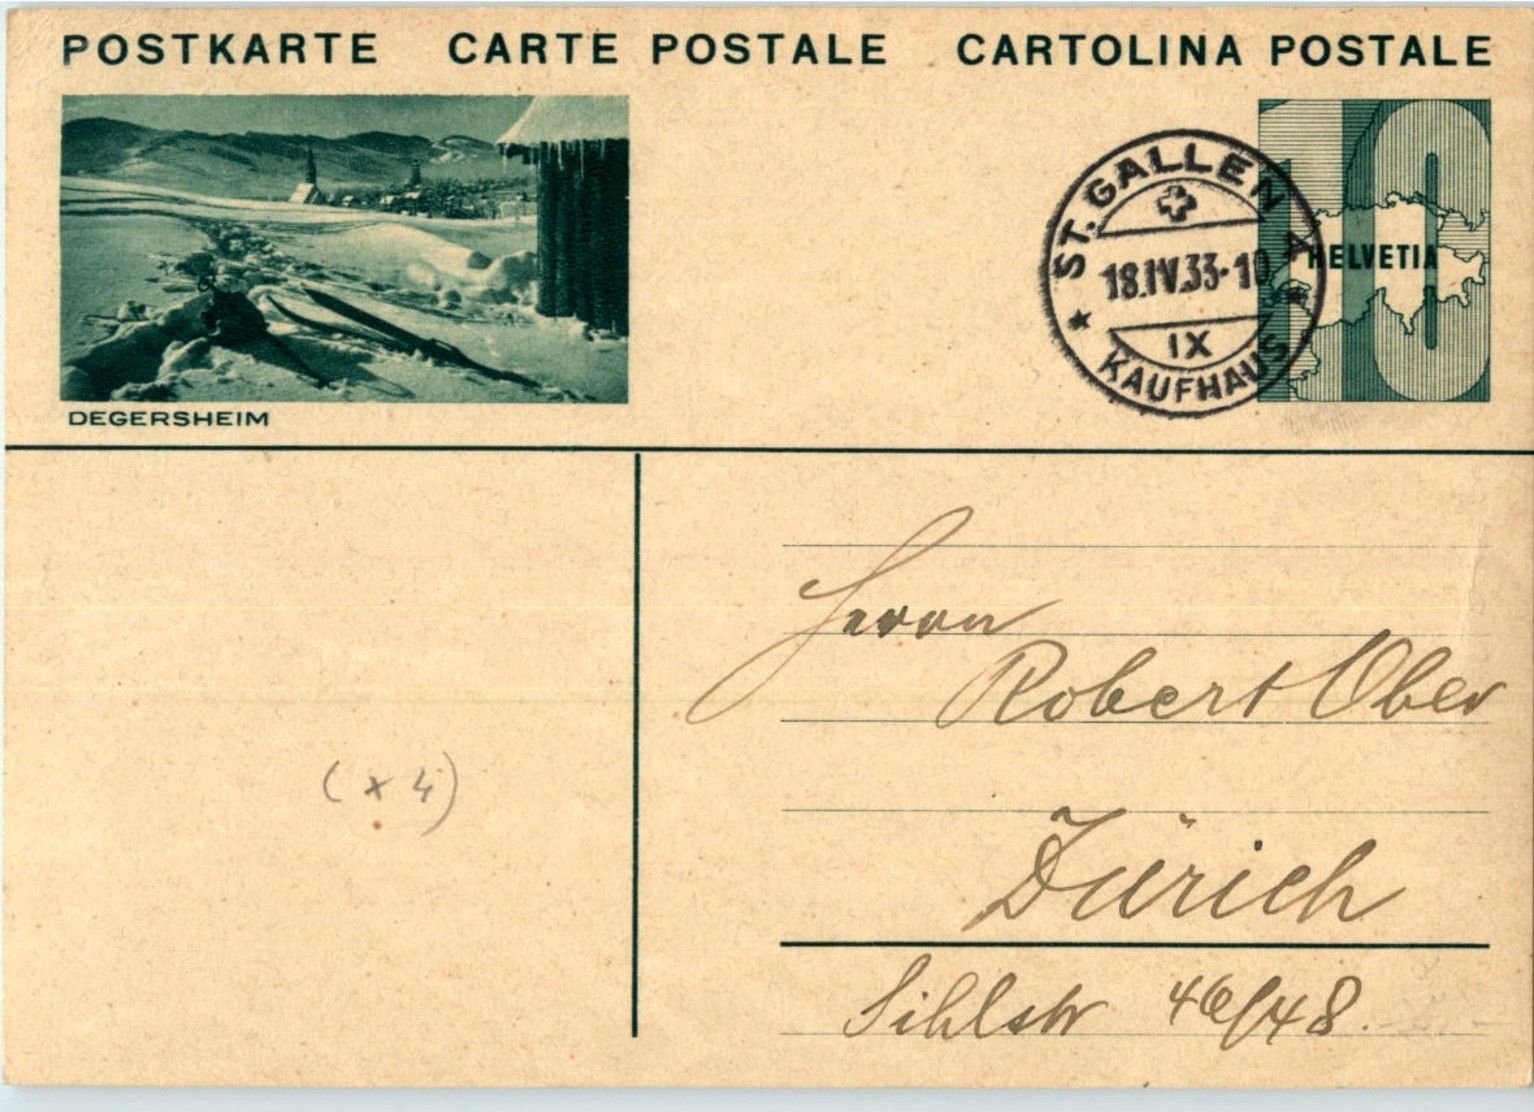 POSTKARTE CARTE POSTALE CARTOLINA POSTALE
10
HELVETIA
ST. GALLEN 1
18.IV.33-10
IX
KAUFHAUS
DEGERSHEIM
Herrn
Robert Ober
Zürich
Sihlstr 46/48.
(x 4)